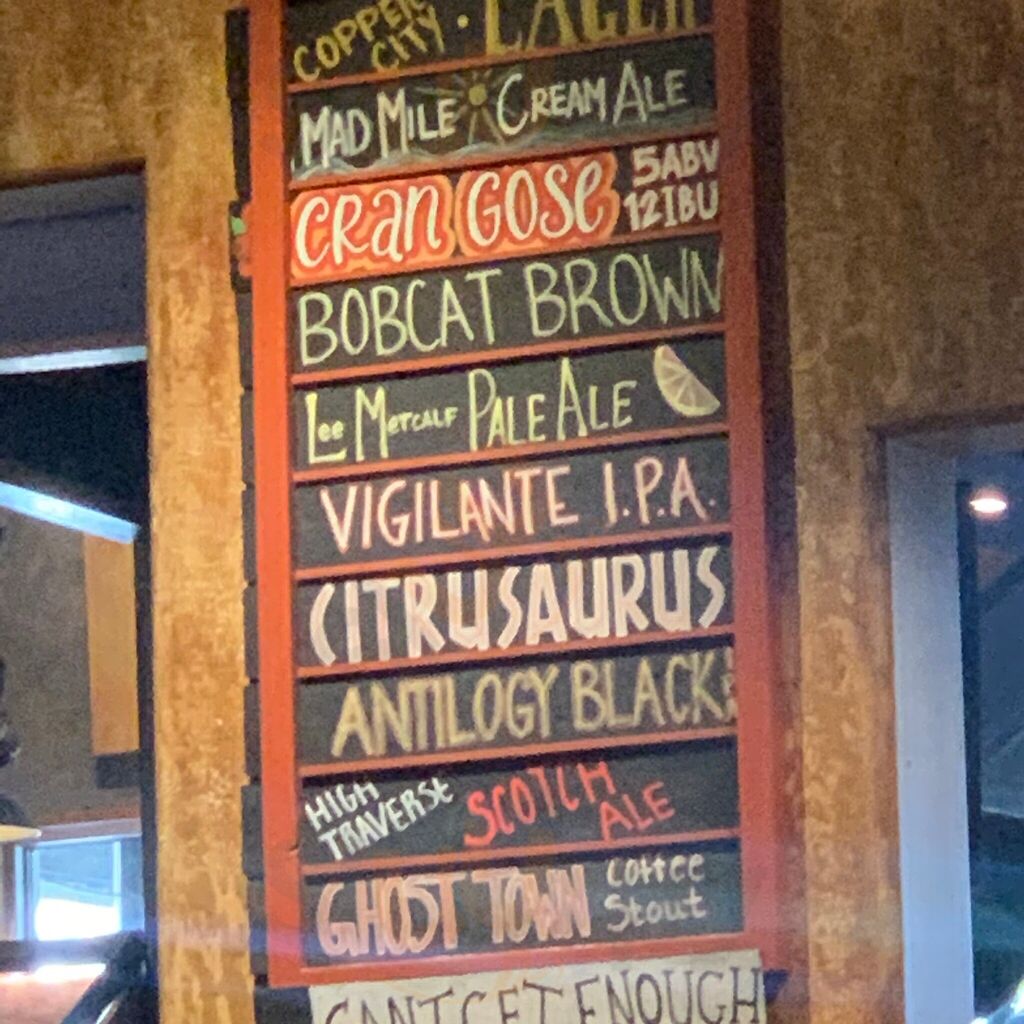 COPPER CITY · LAGER
MAD MILE CREAM ALE
CRAN GOSE 5ABV 12IBU
BOBCAT BROWN
Lee METCALF PALE ALE
VIGILANTE I.P.A.
CITRUSAURUS
ANTILOGY BLACK
HIGH TRAVERSE SCOTCH ALE
GHOST TOWN Coffee Stout
CAN'T GET ENOUGH